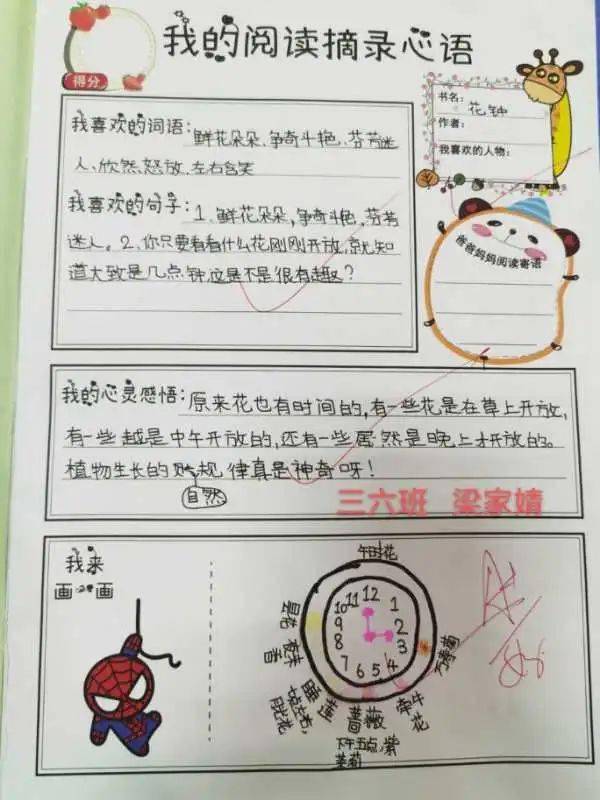 我的阅读摘录心语
得分
书名：花钟
作者：
我喜欢的人物：
爸爸妈妈阅读寄语
我喜欢的词语：鲜花朵朵、争奇斗艳、芬芳迷
人、欣然怒放、左右含笑
我喜欢的句子：1、鲜花朵朵，争奇斗艳，芬芳
迷人。2、你只要看看什么花刚刚开放，就知
道大致是几点钟，这是不是很有趣？
我的心灵感悟：原来花也有时间的，有一些花是在草上开放，
有一些越是中午开放的，还有一些居然是晚上才开放的。
植物生长的规律真是神奇呀！
自然
三六班 梁家婧
我来
画一画
午时花
昙花
夜来香
月光花
睡莲
蔷薇
下午五点，紫
茉莉
牵牛花
万寿菊
12
1
2
3
4
5
6
7
8
9
10
11